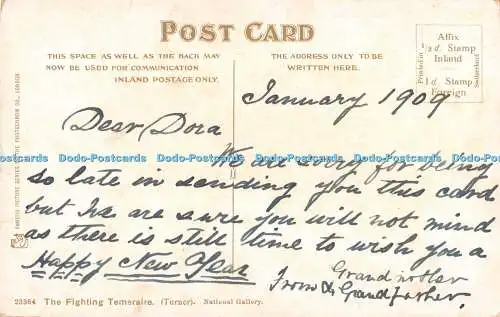 POST CARD
THIS SPACE AS WELL AS THE BACK MAY
NOW BE USED FOR COMMUNICATION
INLAND POSTAGE ONLY.
THE ADDRESS ONLY TO BE
WRITTEN HERE.
Affix
½d. Stamp
Inland
1d. Stamp
Foreign
Printed in
Switzerland
January 1909
Dear Dora
We are sorry for being
so late in sending you this card
but we are sure you will not mind
as there is still time to wish you a
Happy New Year
From Grandmother
& Grandfather.
23364 The Fighting Temeraire. (Turner). National Gallery.
Dodo-Postcards Dodo-Postcards Dodo-Postcards Dodo-Postcards Dodo-Postcards
Dodo-Postcards Dodo-Postcards Dodo-Postcards Dodo-Postcards Dodo-Postcards